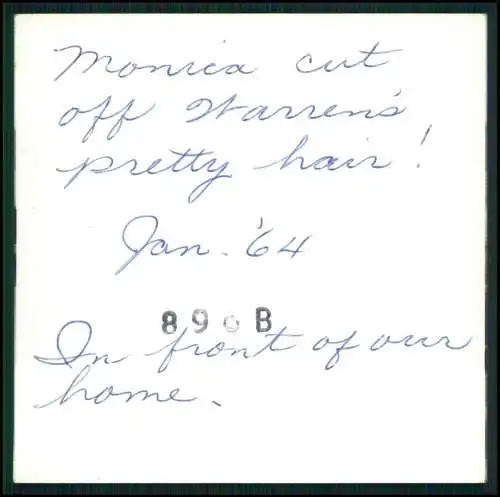 Monica cut
off Warren's
pretty hair!
Jan. '64
89 B
In front of our
home.